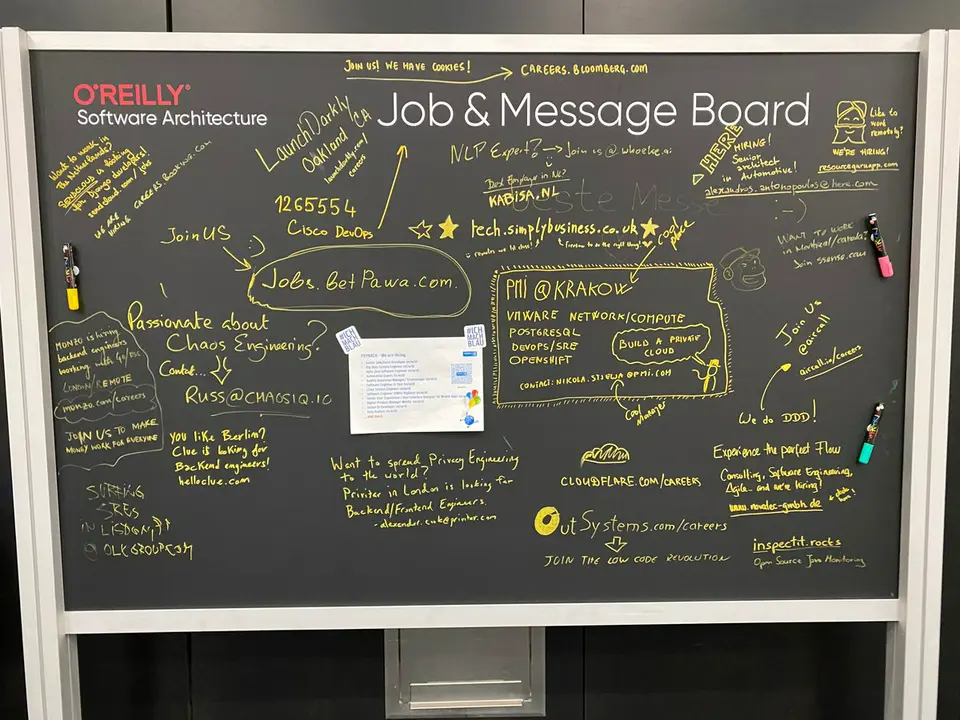 JOIN US! WE HAVE COOKIES! → CAREERS.BLOOMBERG.COM
O'REILLY®
Software Architecture
Job & Message Board
Want to work in
the Netherlands?
for Django developers!
sendcloud.com/jobs
WE ARE HIRING
CAREERS.BOOKING.COM
LaunchDarkly
Oakland CA
launchdarkly.com/
careers
NLP Expert? → Join us @
HERE
HIRING!
Senior
architect
in Automotive!
alexandros.antonopoulos@here.com
Like to
work
remotely?
WE'RE HIRING!
resourceguruapp.com
Best Employer in NL?
KABISA.NL
1265554
Cisco DevOps
tech.simplybusiness.co.uk
cool place
:-)
WANT TO WORK
in Montreal/Canada?
Join ssense.com
Join US :)
Jobs.BetPawa.com.
PMI @ KRAKOW
VMWARE NETWORK/COMPUTE
POSTGRESQL
DEVOPS/SRE
OPENSHIFT
BUILD A PRIVATE
CLOUD
Cool Manager
MONZO is hiring
backend engineers
LONDON REMOTE
monzo.com/careers
JOIN US TO MAKE
MONEY WORK FOR EVERYONE
Passionate about
Chaos Engineering?
Contact...
RUSS@CHAOSIQ.IO
#ICH
MACH
BLAU
#ICH
MACH
BLAU
Join us
@aircall
aircall.io/careers
You like Berlin?
Clue is looking for
Backend engineers!
helloclue.com
Want to spread Privacy Engineering
to the world?
Privitar in London is looking for
Backend/Frontend Engineers.
CLOUDFLARE.COM/CAREERS
We do DDD!
Experience the perfect Flow
Consulting, Software Engineering,
Agile... and we're hiring!
www.novatec-gmbh.de
SURFING
SRES
IN LISBON
@OLXGROUP.COM
OutSystems.com/careers
JOIN THE LOW CODE REVOLUTION
inspectit.rocks
Open Source Java Monitoring